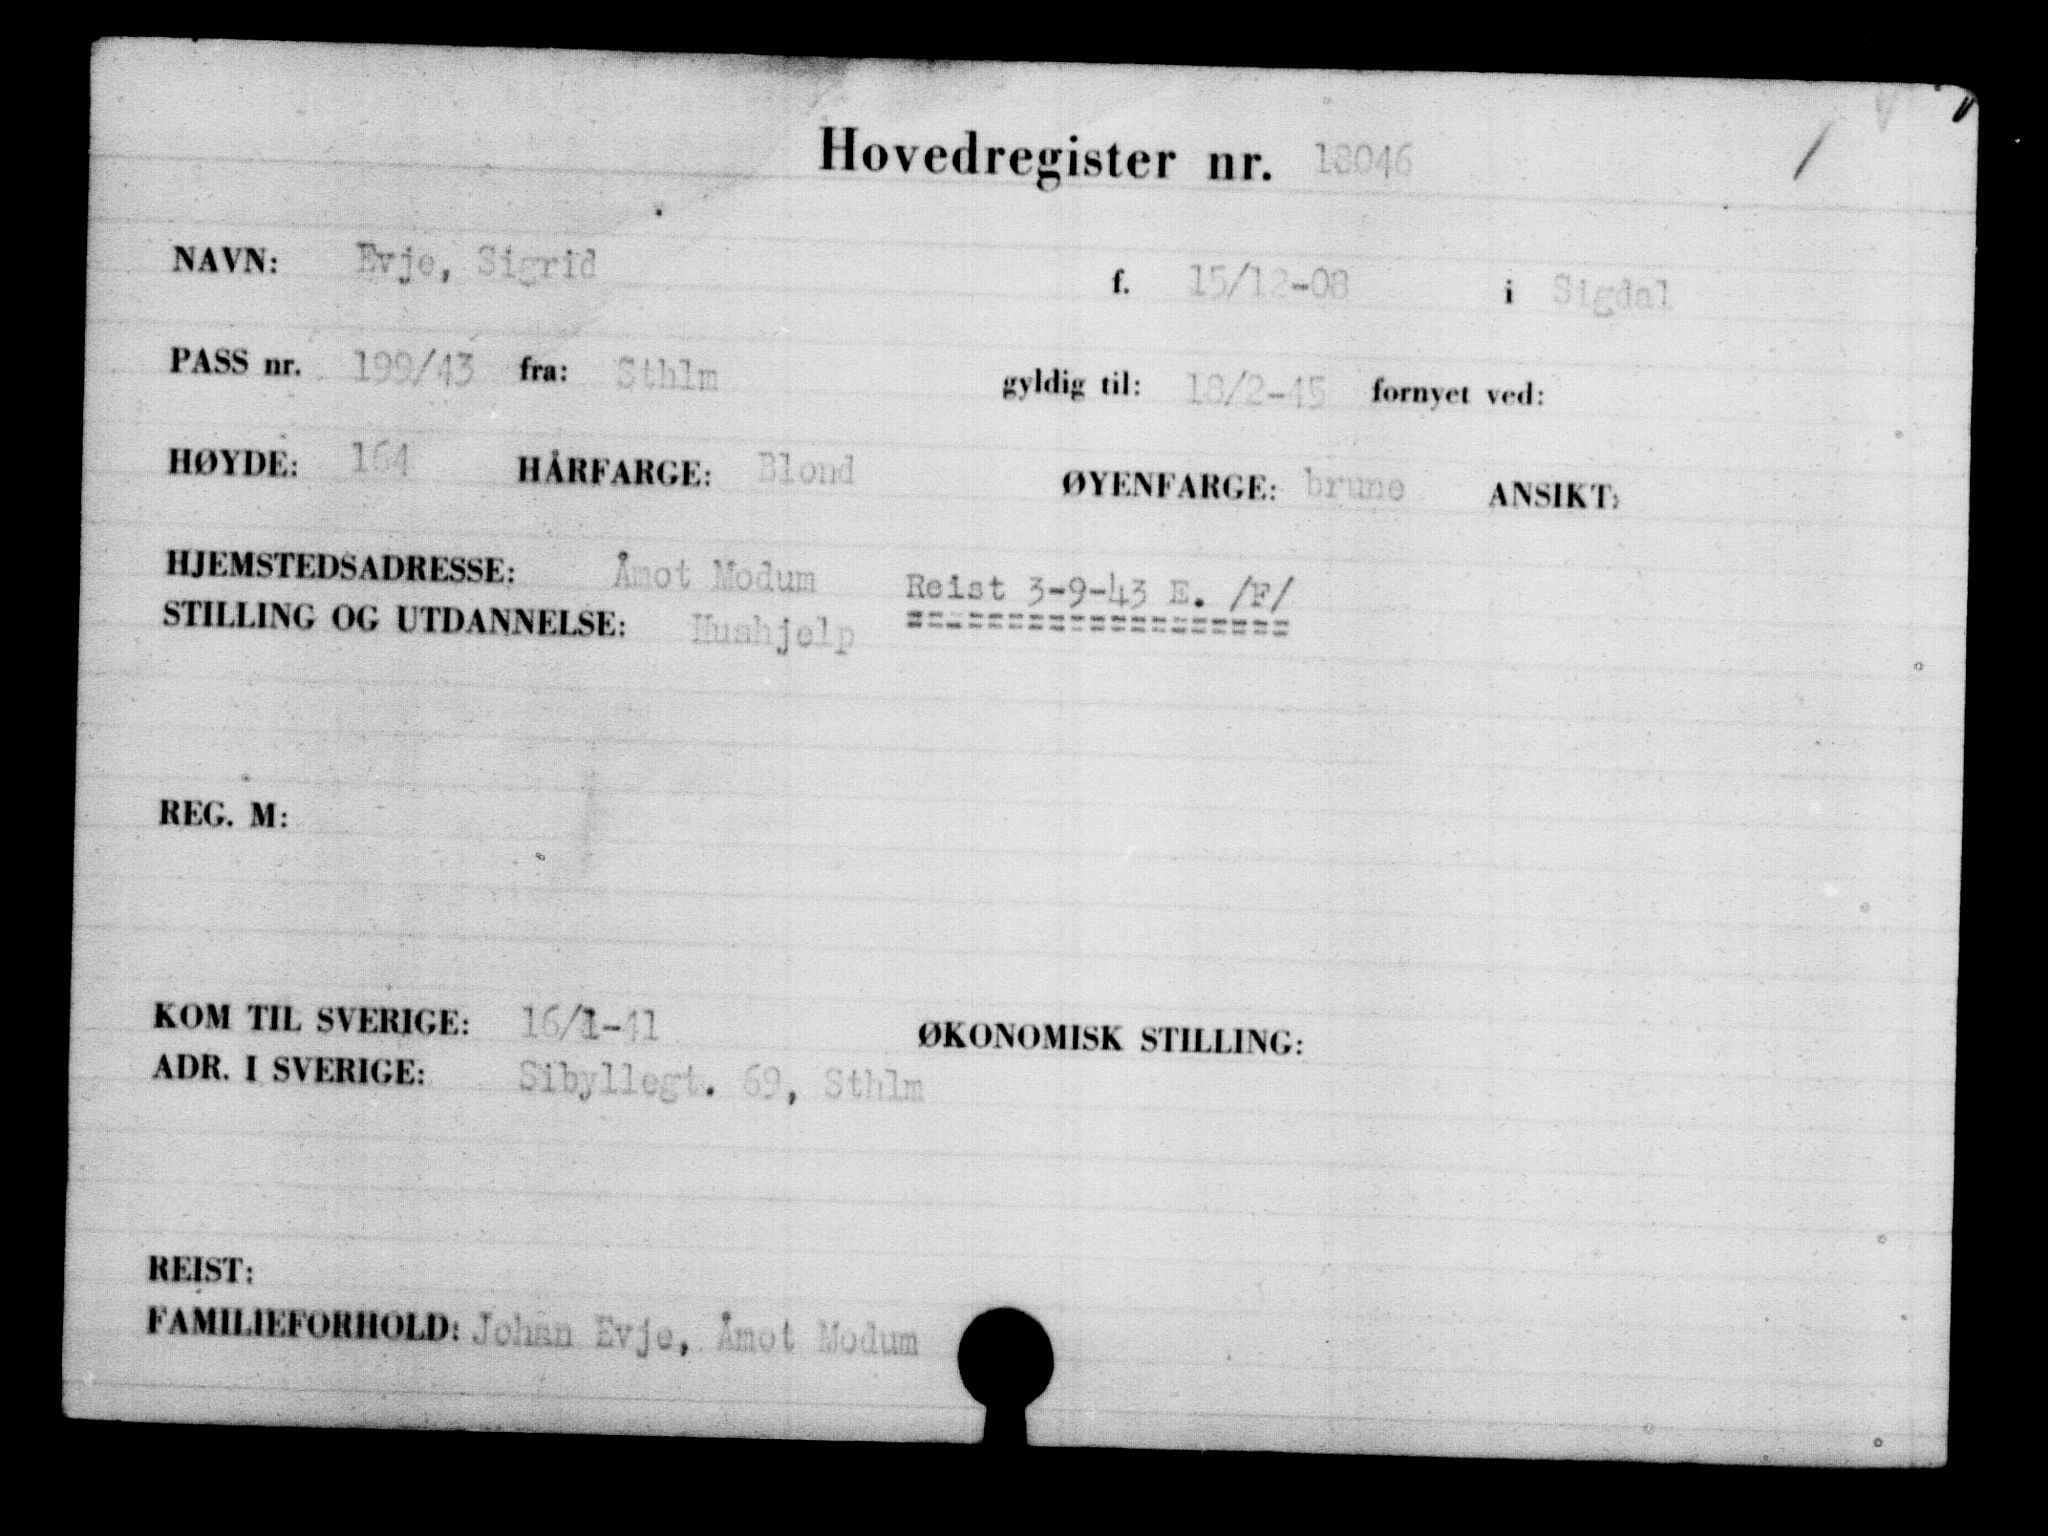 Hovedregister nr. 18046
NAVN: Evje, Sigrid f. 15/12-08 i Sigdal
PASS nr. 199/43 fra: Sthlm gyldig til: 18/2-45 fornyet ved:
HØYDE: 164 HÅRFARGE: Blond ØYENFARGE: brune ANSIKT:
HJEMSTEDSADRESSE: Åmot Modum Reist 3-9-43 E. /F/
STILLING OG UTDANNELSE: Hushjelp ===================
REG. M:
KOM TIL SVERIGE: 16/1-41 ØKONOMISK STILLING:
ADR. I SVERIGE: Sibyllegt. 69, Sthlm
REIST:
FAMILIEFORHOLD: Johan Evje, Åmot Modum